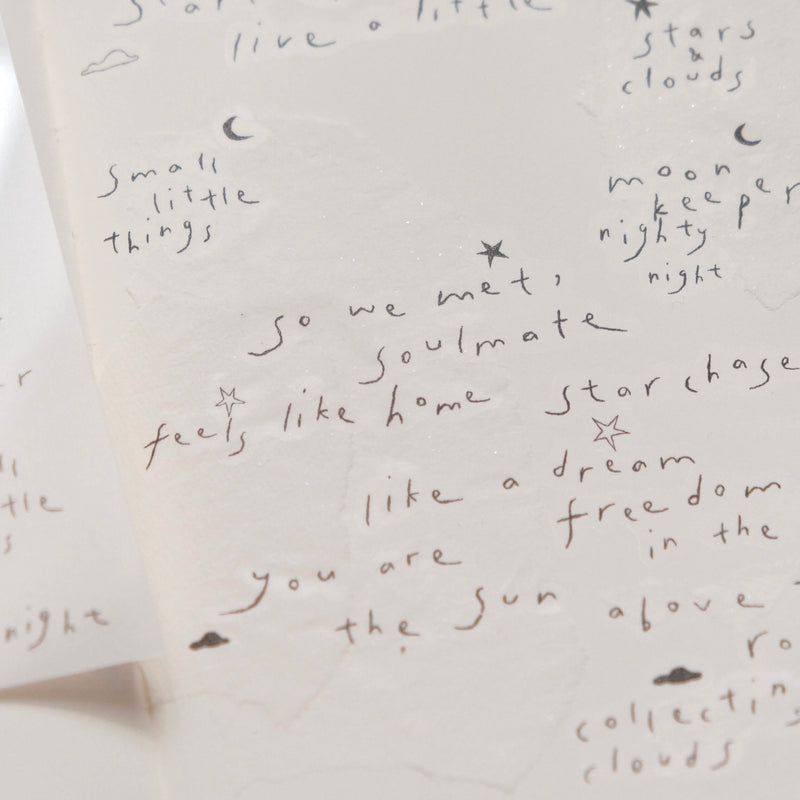 live a little
stars
&
clouds
small
little
things
moon
keeper
nighty
night
so we met,
soulmate
feels like home
star chase
like a dream
freedom
in the
you are
the sun above
collecting
clouds
night